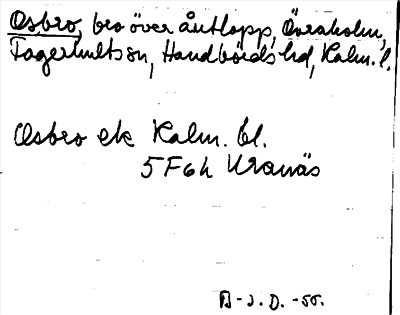 Osbro, bro över åutlopp, Övraholm,
Fagerhults sn, Handbörds hd, Kalm. l.
Osbro ek Kalm. bl.
5F6h Uranäs
B-J.D.-55.